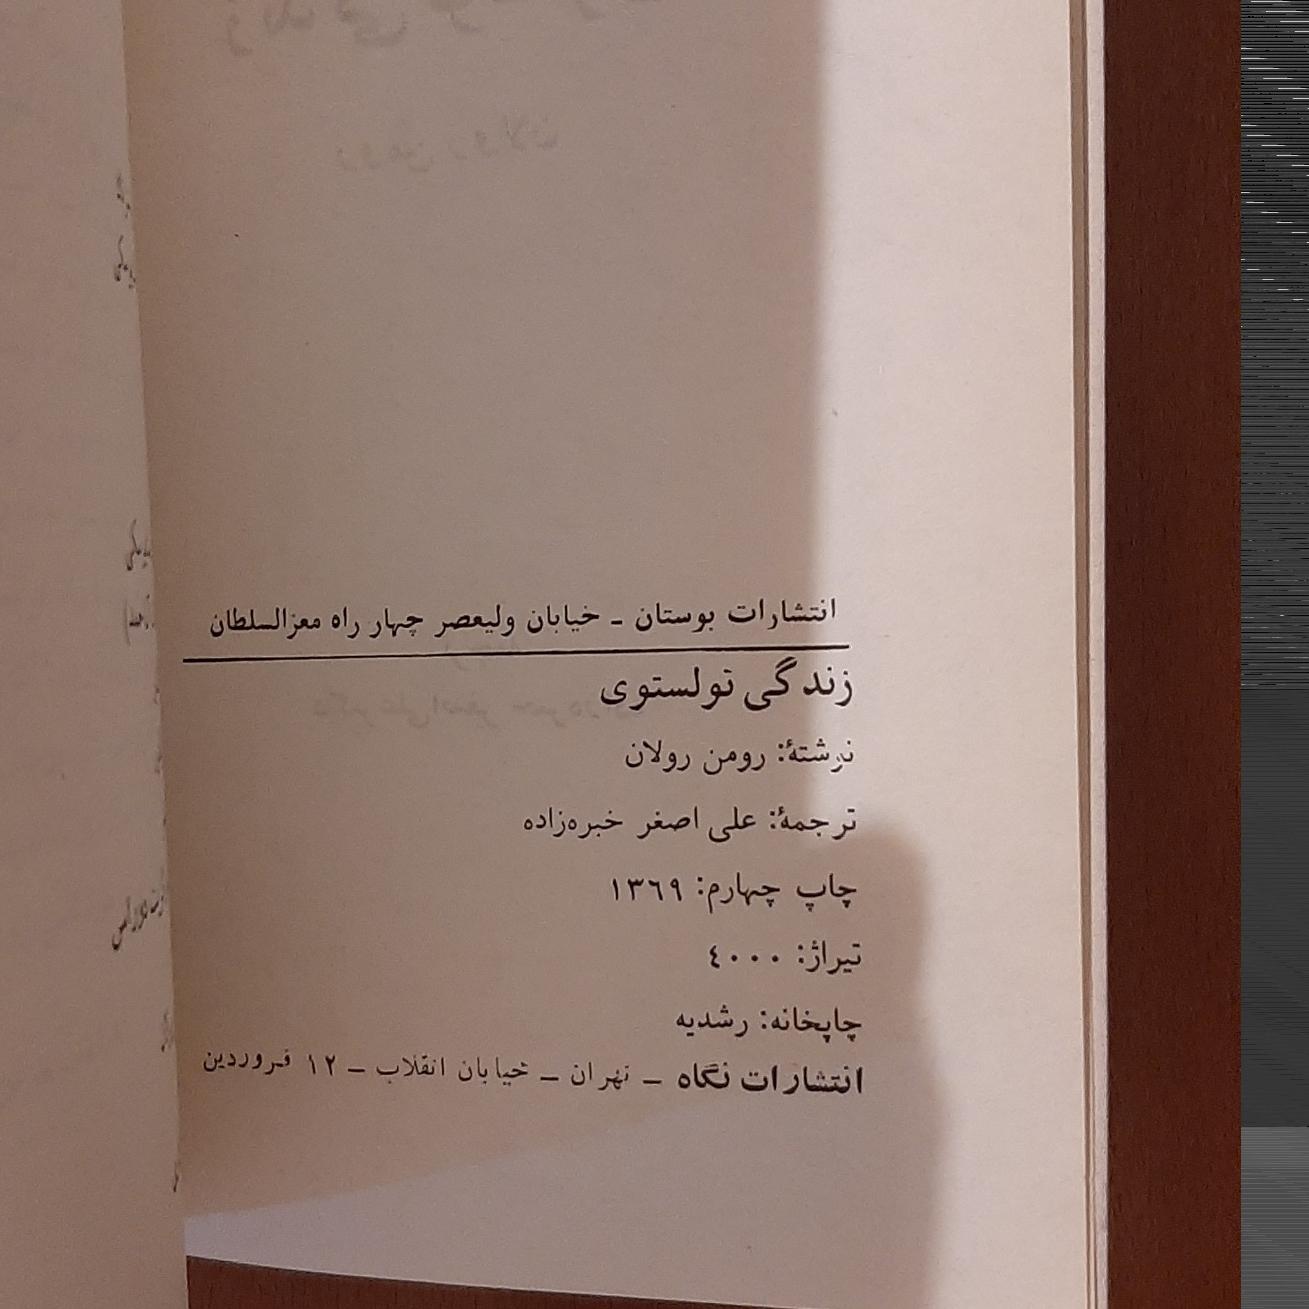 انتشارات بوستان – خیابان ولیعصر چهار راه معزالسلطان
زندگی تولستوی
نوشتهٔ: رومن رولان
ترجمهٔ: علی اصغر خبره‌زاده
چاپ چهارم: ۱۳٦۹
تیراژ: ٤۰۰۰
چاپخانه: رشدیه
انتشارات نگاه – تهران – خیابان انقلاب – ۱۲ فروردین